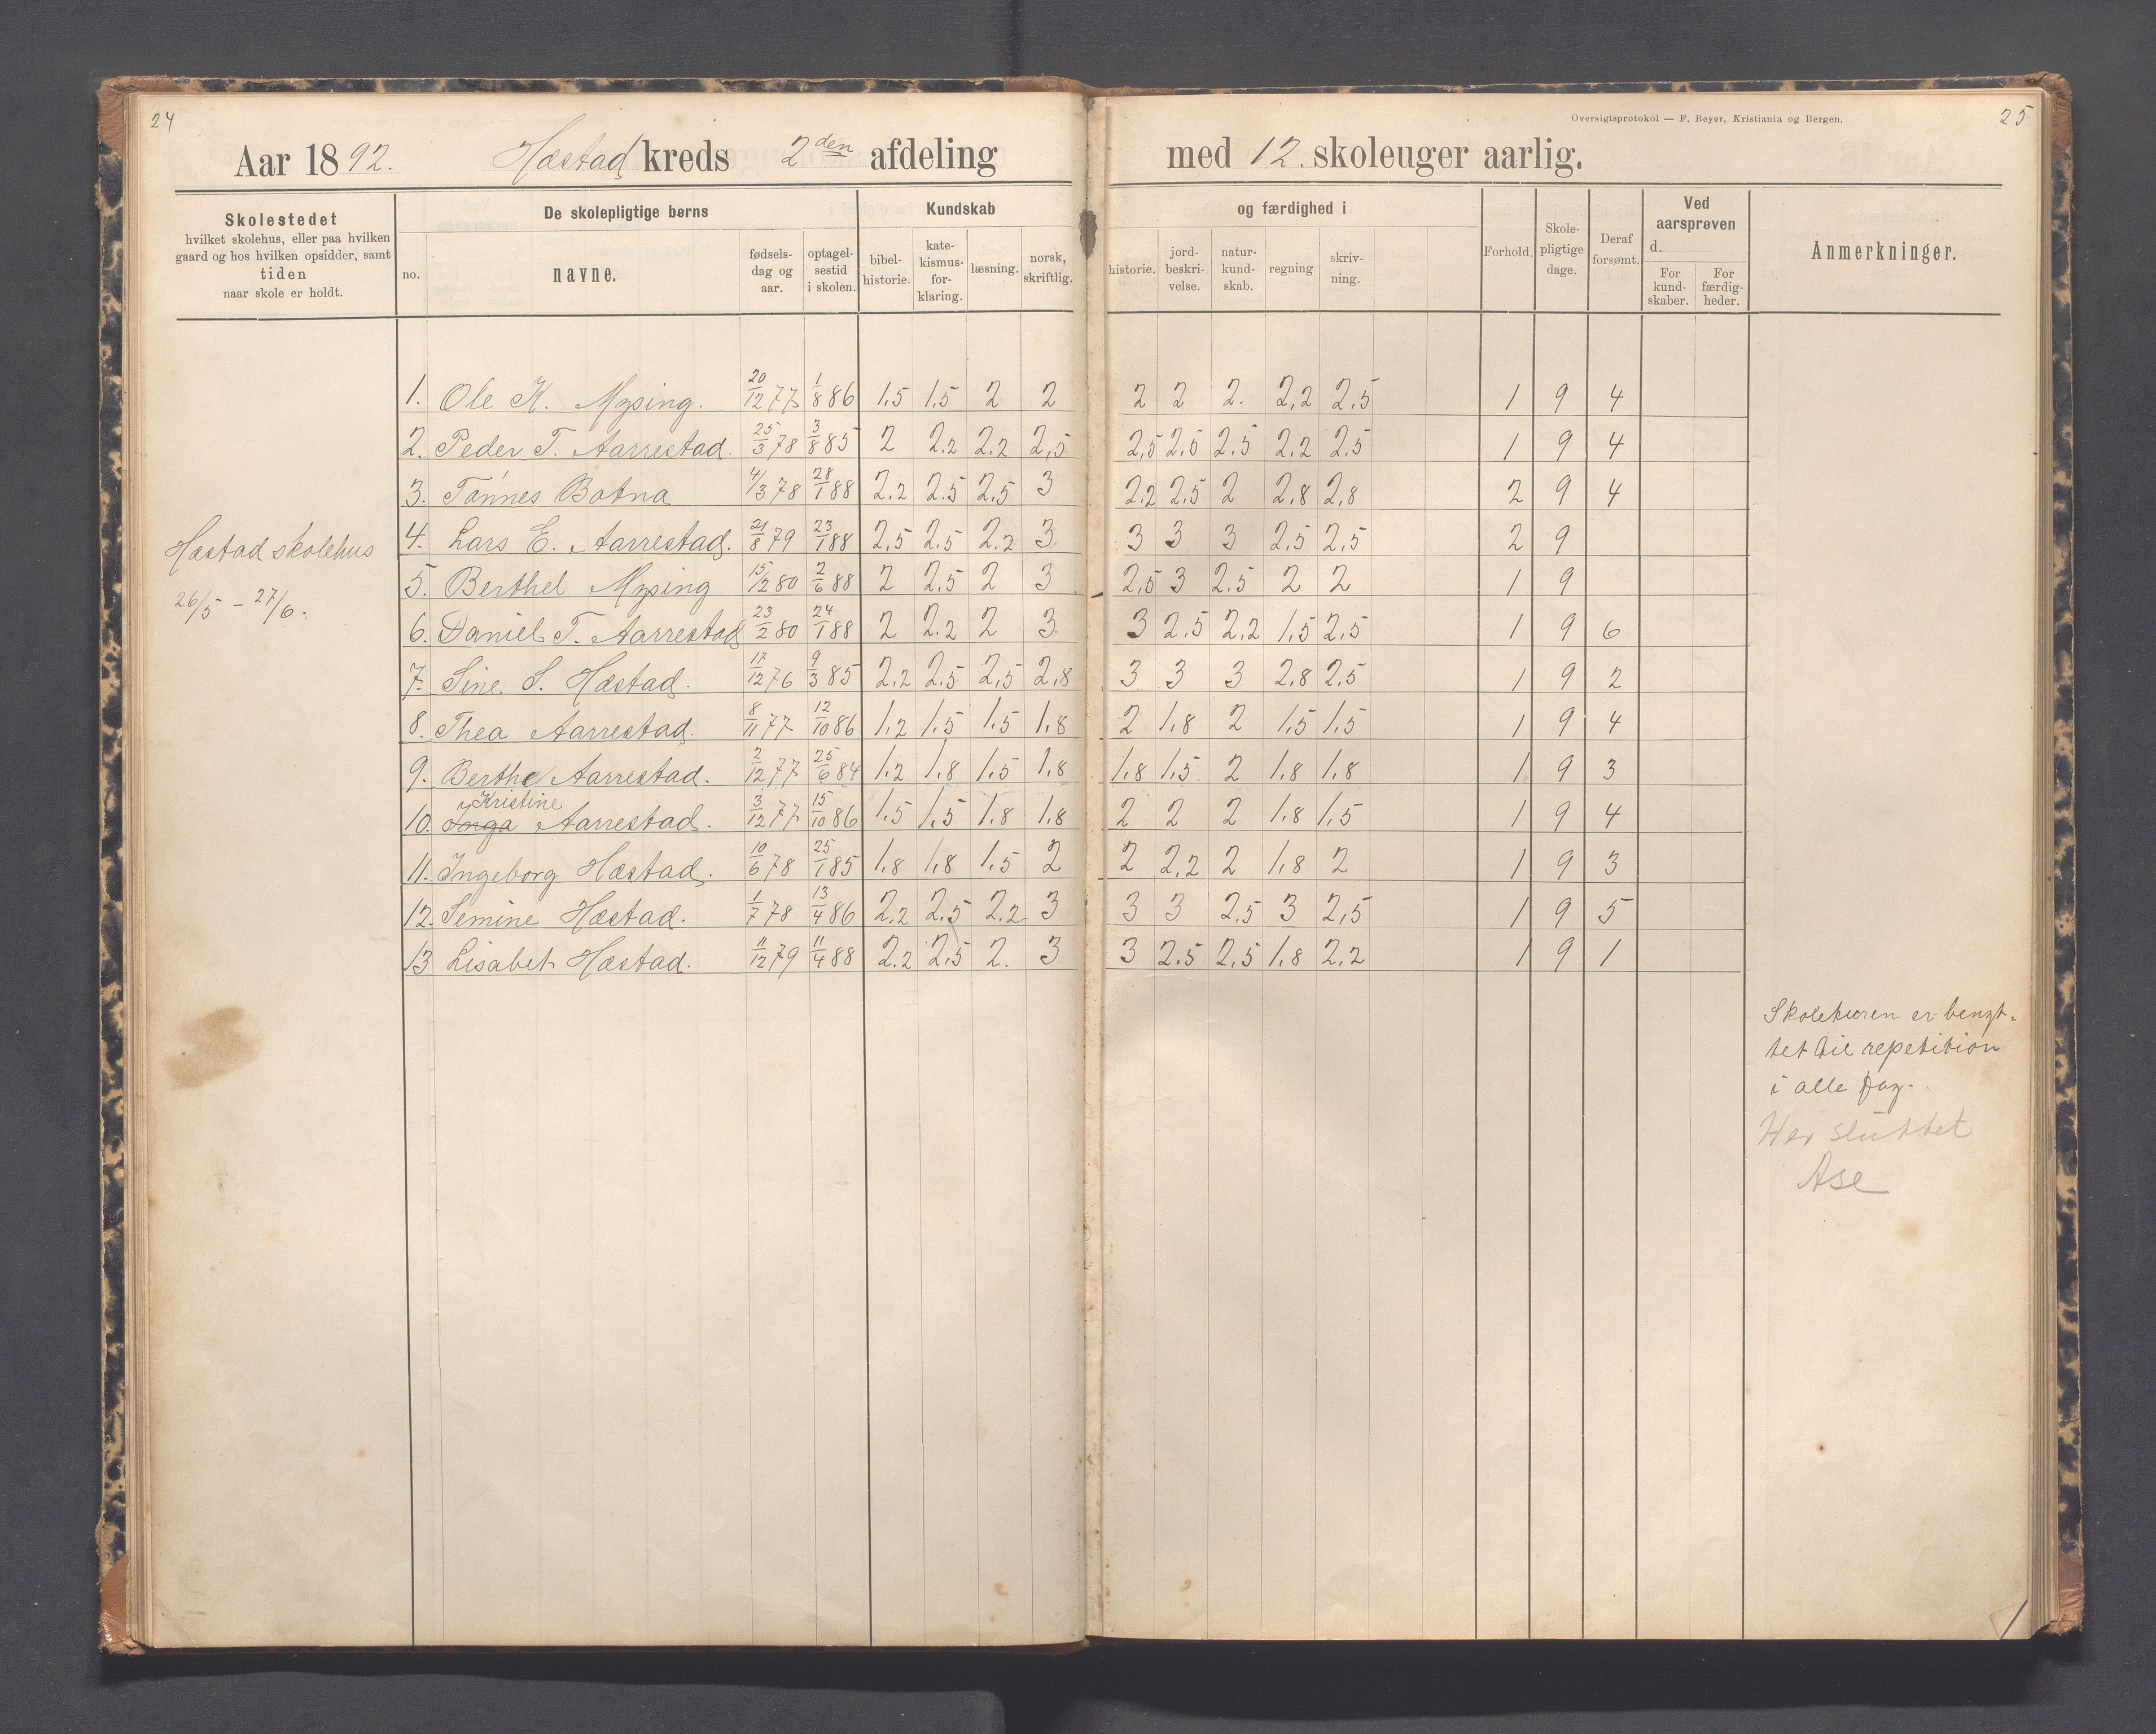 24
Oversigtsprotokol — F. Beyer, Kristiania og Bergen.
25
Aar 1892. Hæstad kreds 2den afdeling med 12. skoleuger aarlig.
Skolestedet
hvilket skolehus, eller paa hvilken
gaard og hos hvilken opsidder, samt
tiden
naar skole er holdt.
De skolepligtige børns
no.
navne.
fødsels-
dag og
aar.
optagel-
sestid
i skolen.
Kundskab
bibel-
historie.
kate-
kismus-
for-
klaring.
læsning.
norsk,
skriftlig.
og færdighed i
historie.
jord-
beskri-
velse.
natur-
kund-
skab.
regning
skriv-
ning.
Forhold.
Skole-
pligtige
dage.
Deraf
forsømt.
Ved
aarsprøven
d.
For
kund-
skaber.
For
færdig-
heder.
Anmerkninger.
Hæstad skolehus
26/5 – 27/6.
1. Ole K. Mysing. 20/12 77 1/8 86 1,5 1,5 2 2 2 2 2. 2,2 2,5 1 9 4
2. Peder T. Aarrestad. 25/3 78 3/8 85 2 2.2 2.2 2,5 2,5 2,5 2,5 2,2 2,5 1 9 4
3. Tønnes Botna 4/3 78 28/1 88 2,2 2,5 2,5 3 2,2 2,5 2 2,8 2,8 2 9 4
4. Lars E. Aarrestad. 21/8 79 23/1 88 2,5 2,5 2.2 3 3 3 3 2,5 2,5 2 9
5. Berthel Mysing 15/12 80 2/6 88 2 2,5 2 3 2,5 3 2,5 2 2 1 9
6. Daniel T. Aarrestad 23/2 80 24/1 88 2 2.2 2 3 3 2,5 2,2 1,5 2,5 1 9 6
7. Sine. S. Hæstad. 17/12 76 9/3 85 2,2 2,5 2,5 2,8 3 3 3 2,8 2,5 1 9 2
8. Thea Aarrestad. 8/11 77 12/10 86 1,2 1,5 1,5 1,8 2 1,8 2 1,5 1,5 1 9 4
9. Berthe Aarrestad. 2/12 77 25/6 84 1,2 1,8 1,5 1,8 1,8 1,5 2 1,8 1,8 1 9 3
Kristine
10. Inga Aarrestad. 3/12 77 15/10 86 1,5 1,5 1,8 1,8 2 2 2 1,8 1,5 1 9 4
11. Ingeborg Hæstad. 10/6 78 25/1 85 1,8 1,8 1,5 2 2 2,2 2 1,8 2 1 9 3
12. Semine Hæstad. 1/7 78 13/4 86 2,2 2,5 2,2 3 3 3 2,5 3 2,5 1 9 5
13 Lisabet Hæstad. 11/12 79 11/4 88 2.2 2,5 2. 3 3 2,5 2,5 1,8 2,2 1 9 1
Skoleturen er benyt-
tet til repetition
i alle fag.
Her sluttet
Ase